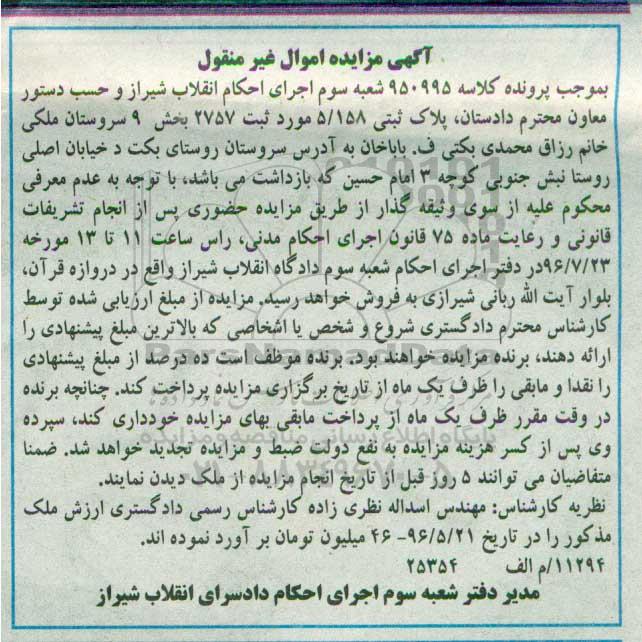 آگهی مزایده اموال غیر منقول
بموجب پرونده کلاسه ۹۵۰۹۹۵ شعبه سوم اجرای احکام انقلاب شیراز و حسب دستور
معاون محترم دادستان، پلاک ثبتی ۵/۱۵۸ مورد ثبت ۲۷۵۷ بخش ۹ سروستان ملکی
خانم رزاق محمدی بکتی ف. باباخان به آدرس سروستان روستای بکت د خیابان اصلی
روستا نبش جنوبی کوچه ۳ امام حسین که بازداشت می باشد، با توجه به عدم معرفی
محکوم علیه از سوی وثیقه گذار از طریق مزایده حضوری پس از انجام تشریفات
قانونی و رعایت ماده ۷۵ قانون اجرای احکام مدنی، راس ساعت ۱۱ تا ۱۳ مورخه
۹۶/۷/۲۳در دفتر اجرای احکام شعبه سوم دادگاه انقلاب شیراز واقع در دروازه قرآن،
بلوار آیت الله ربانی شیرازی به فروش خواهد رسید. مزایده از مبلغ ارزیابی شده توسط
کارشناس محترم دادگستری شروع و شخص یا اشخاصی که بالاترین مبلغ پیشنهادی را
ارائه دهند، برنده مزایده خواهند بود. برنده موظف است ده درصد از مبلغ پیشنهادی
را نقدا و مابقی را ظرف یک ماه از تاریخ برگزاری مزایده پرداخت کند. چنانچه برنده
در وقت مقرر ظرف یک ماه از پرداخت مابقی بهای مزایده خودداری کند، سپرده
وی پس از کسر هزینه مزایده به نفع دولت ضبط و مزایده تجدید خواهد شد. ضمنا
متقاضیان می توانند ۵ روز قبل از تاریخ انجام مزایده از ملک دیدن نمایند.
نظریه کارشناس: مهندس اسداله نظری زاده کارشناس رسمی دادگستری ارزش ملک
مذکور را در تاریخ ۹۶/۵/۲۱- ۴۶ میلیون تومان بر آورد نموده اند.
۱۱۲۹۴/م الف ۲۵۳۵۴
مدیر دفتر شعبه سوم اجرای احکام دادسرای انقلاب شیراز